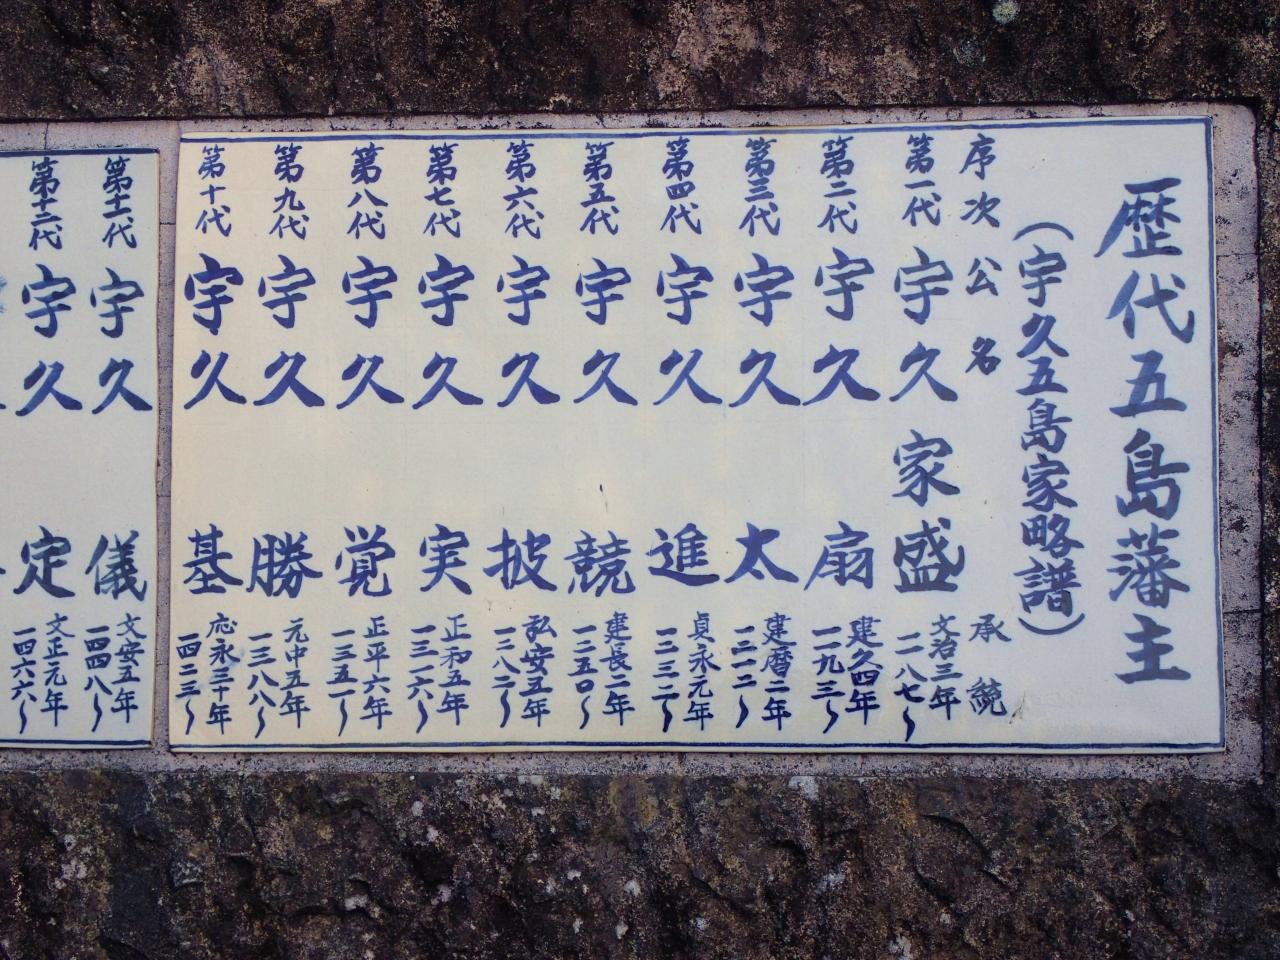 歴代五島藩主
（宇久五島家略譜）
序次 公名 承統
第一代 宇久家盛 文治三年 一一八七〜
第二代 宇久扇 建久四年 一一九三〜
第三代 宇久太 建暦二年 一二一二〜
第四代 宇久進 貞永元年 一二三二〜
第五代 宇久競 建長二年 一二五〇〜
第六代 宇久披 弘安五年 一二八二〜
第七代 宇久実 正和五年 一三一六〜
第八代 宇久覚 正平六年 一三五一〜
第九代 宇久勝 元中五年 一三八八〜
第十代 宇久基 応永三十年 一四二三〜
第十一代 宇久儀 文安五年 一四四八〜
第十二代 宇久定 文正元年 一四六六〜